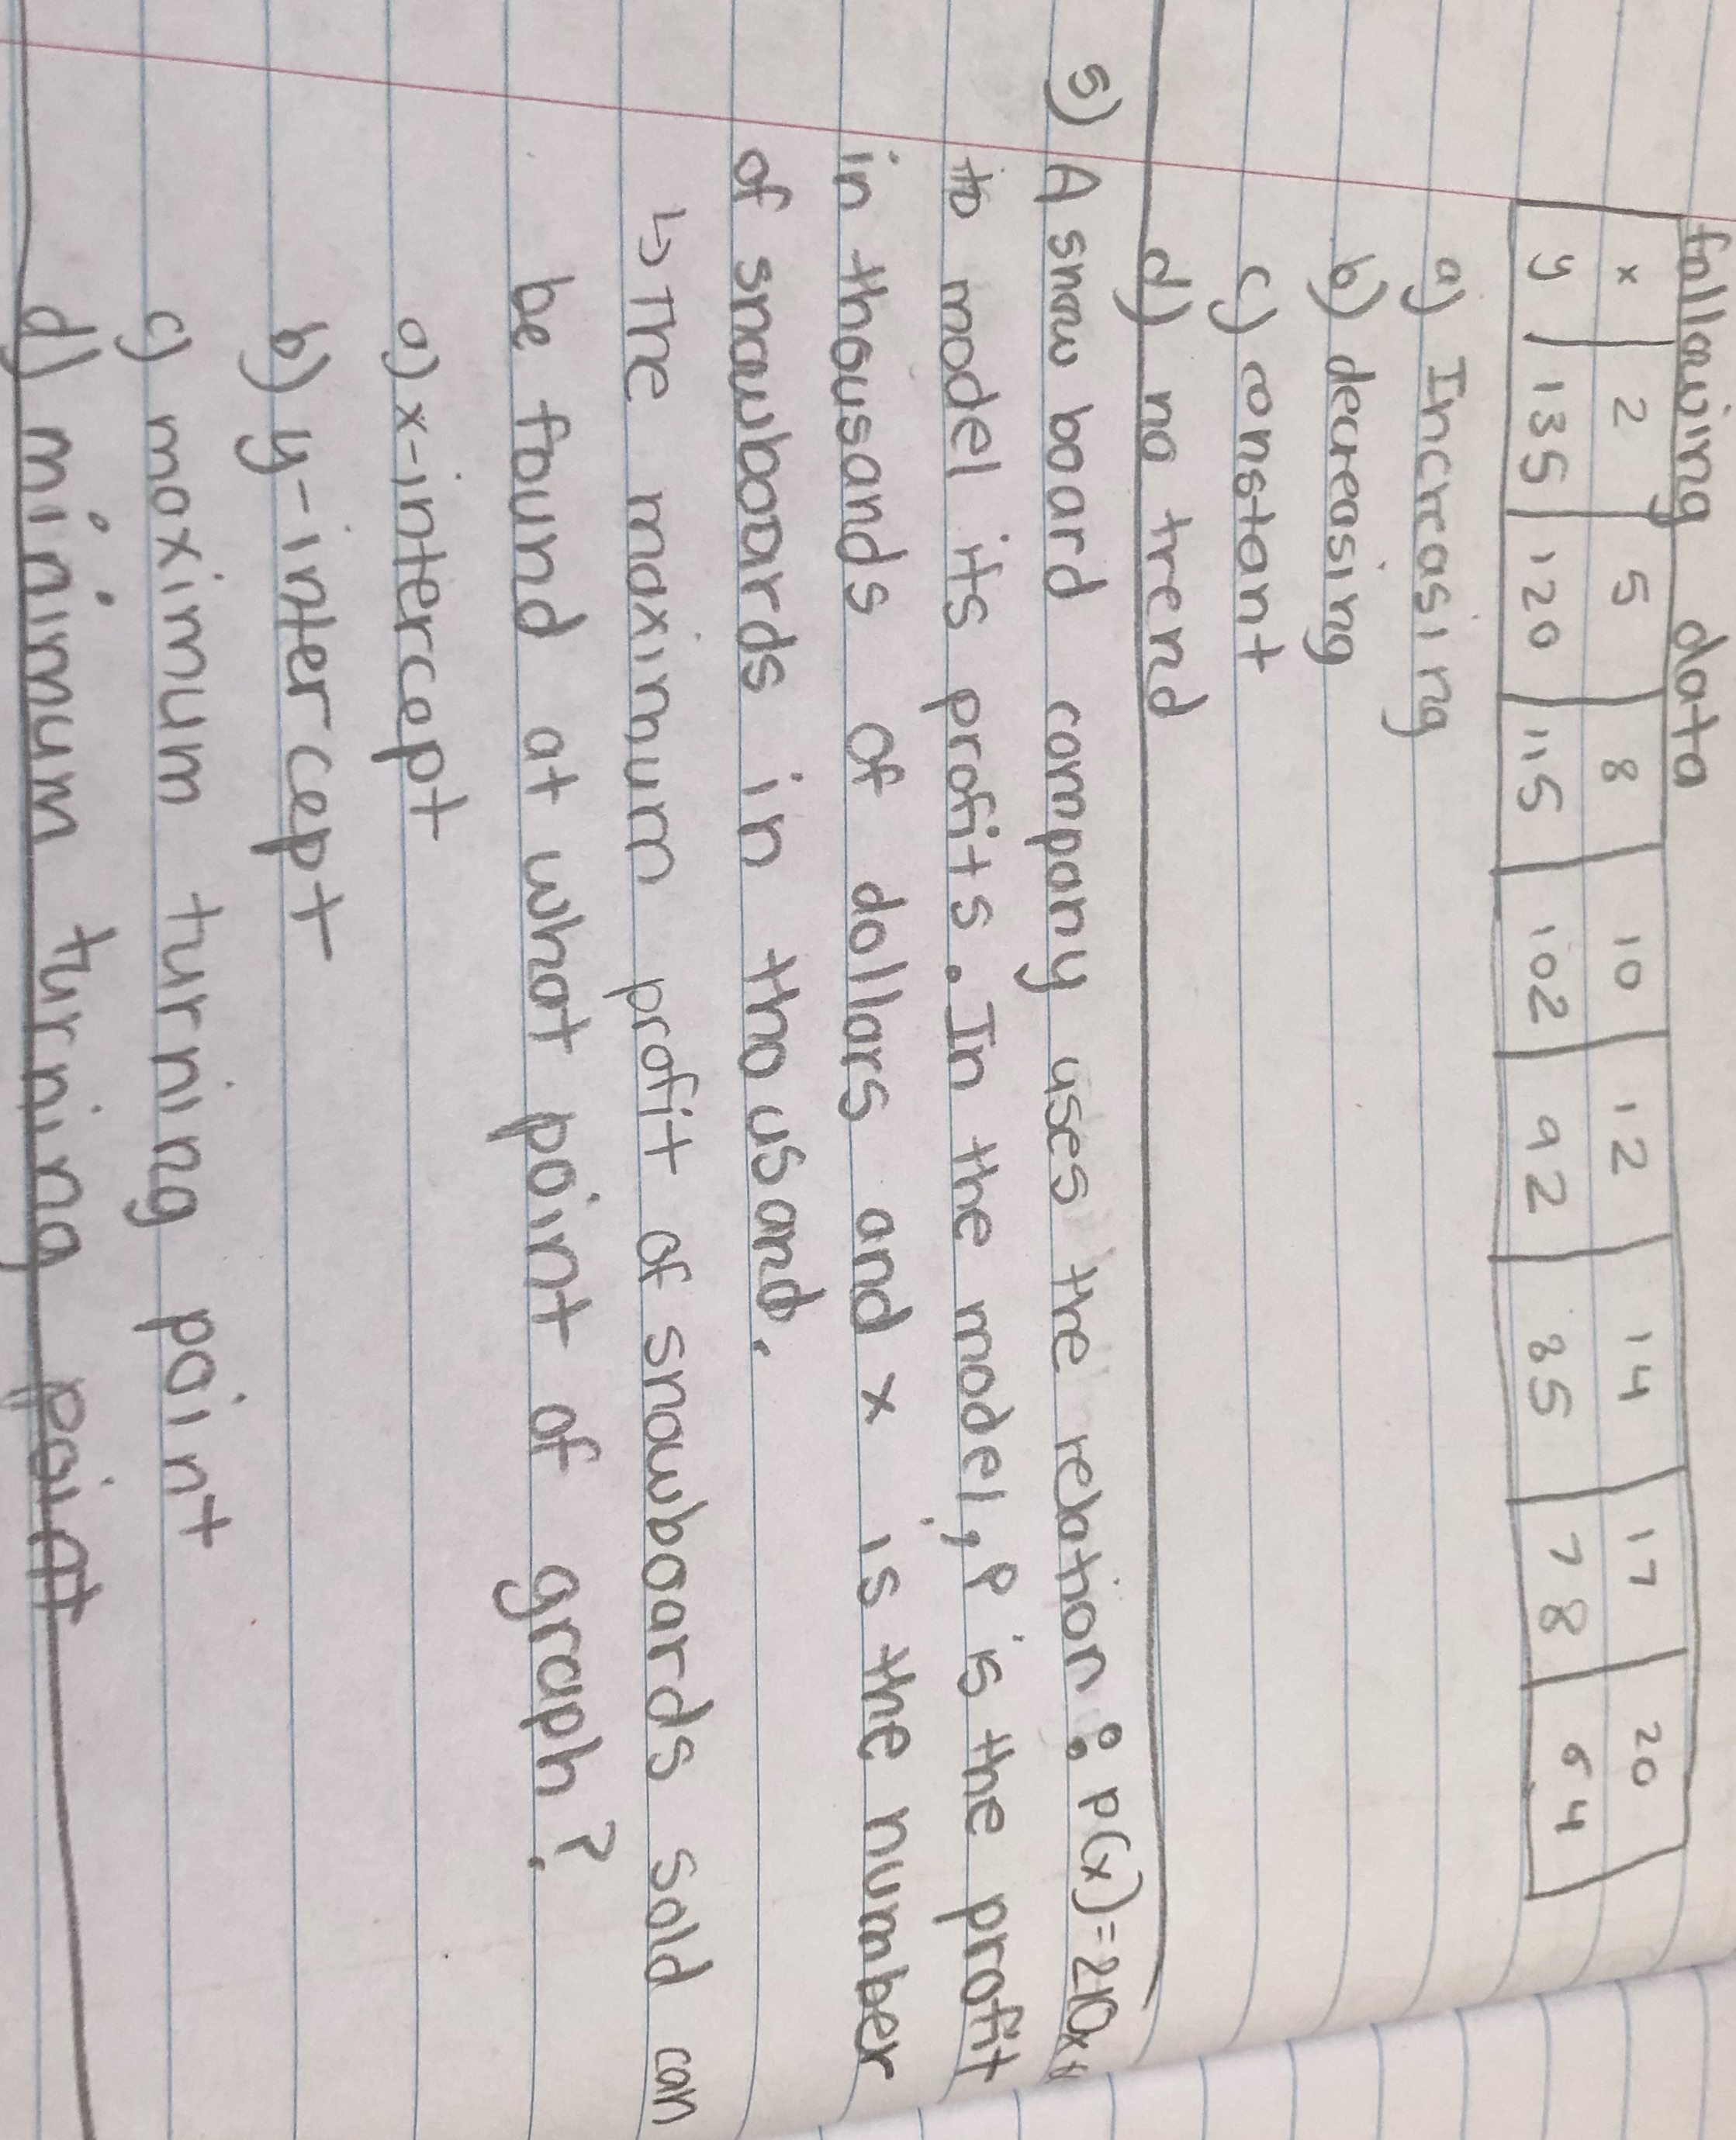 following data
x 2 5 8 10 12 14 17 20
y 135 120 115 102 92 85 78 64
a) Increasing
b) decreasing
c) constant
d) no trend
5) A snow board company uses the relation : P(x)=210x
to model its profits. In the model, P is the profit
in thousands of dollars and x is the number
of snowboards in thousand.
↳ The maximum profit of snowboards sold can
be found at what point of graph?
a) x-intercept
b) y-intercept
c) maximum turning point
d) minimum turning point